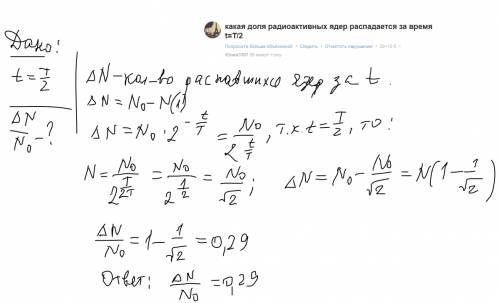 какая доля радиоактивных ядер распадается за время
t=T/2
Попросите больше объяснений • Следить • Отметить нарушение •
Дано:
t = T/2
ΔN/N₀ - ?
ΔN - кол-во распавшихся ядер за t.
ΔN = N₀ - N(1)
ΔN = N₀ · 2^(-t/T) = N₀/2^(t/T), т.к. t = T/2, то:
N = N₀/2^(T/2T) = N₀/2^(1/2) = N₀/√2; ΔN = N₀ - N₀/√2 = N(1 - 1/√2)
ΔN/N₀ = 1 - 1/√2 = 0,29
Ответ: ΔN/N₀ = 0,29